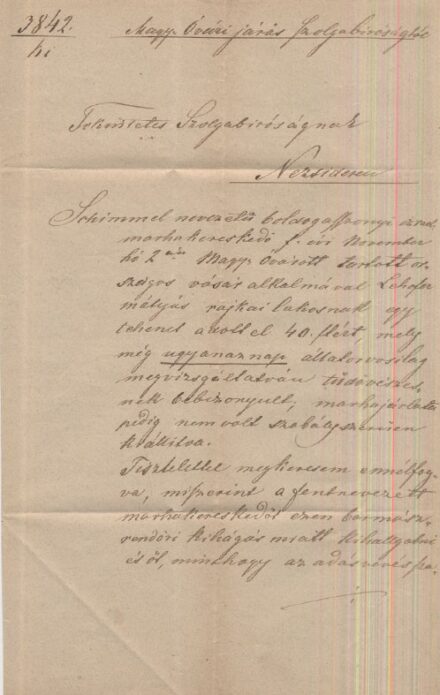 3842.
ki
Magy. Óvári járás Szolgabiróságtól
Tekintetes Szolgabiróságnak
Nezsideren
Schimmel nevezetű boldogasszonyi
marhakereskedő f. évi November
hó 2 án Magy. Óvárott tartott or-
szágos vásár alkalmával Lehofer
mátyás rajkai lakosnak egy
tehenet adott el 40. ftért, mely
még ugyanaz nap állatorvosilag
megvizsgáltatván tüdővészes-
nek bebizonyult, marhajárlata
pedig nem volt szabályszerüen
kiállitva.
Tisztelettel megkeresem ennélfog-
va, miszerint a fentnevezett
marhakereskedőt ezen
rendőri kihágás miatt kihallgatni
és őt, minthogy az adásvevés